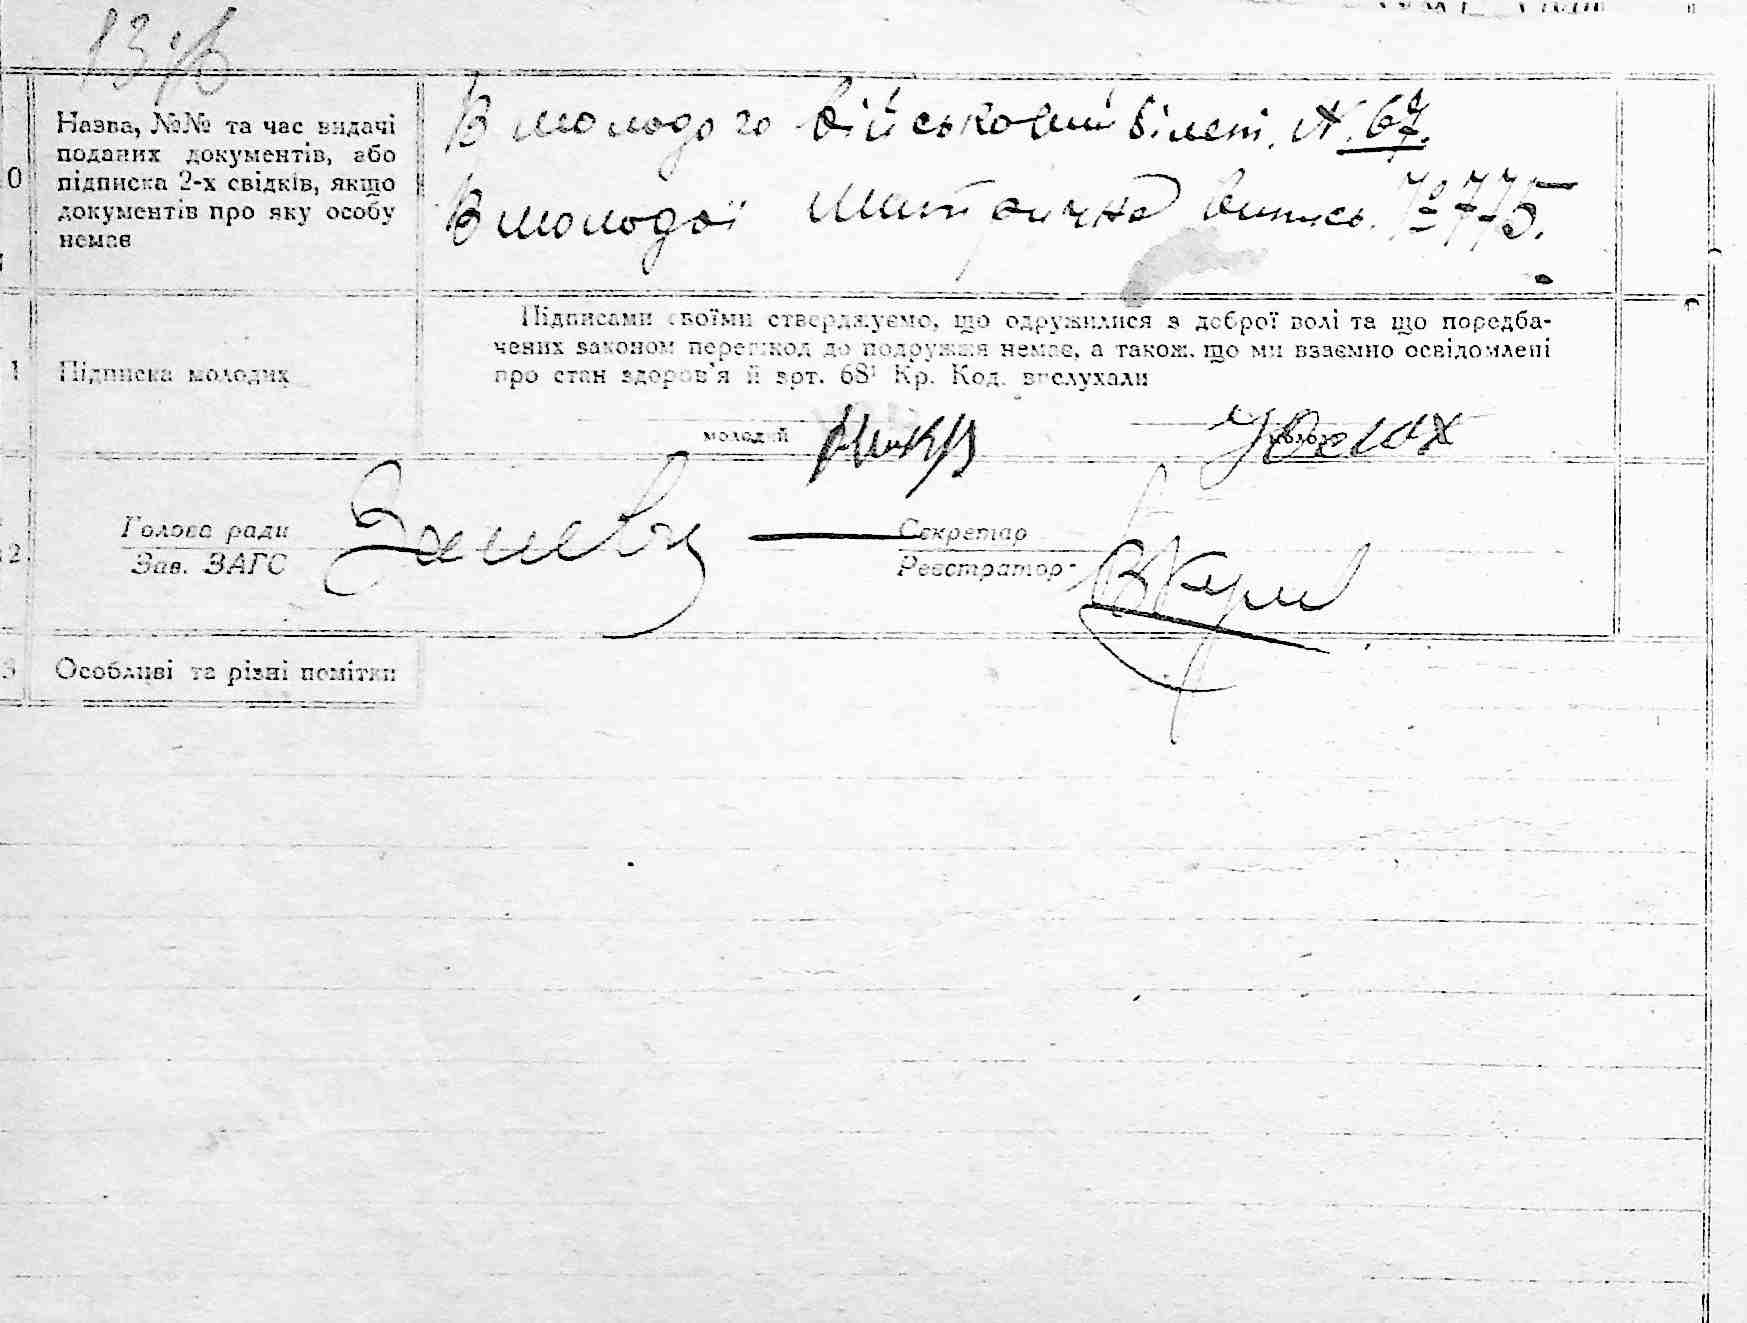 Назва, №№ та час видачі
поданих документів, або
підписка 2-х свідків, якщо
документів про яку особу
немає
В молодого військовий білет. N. 67.
В молодої метрична випись. № 775.
1 Підписка молодих
Підписами своїми стверджуємо, що одружилися з доброї волі та що передба-
чених законом перешкод до подружжя немає, а також, що ми взаємно освідомлені
про стан здоров'я й арт. 68¹ Кр. Код. вислухали
молодий
Голова ради
Зав. ЗАГС
Секретар
Реєстратор
Особливі та різні помітки